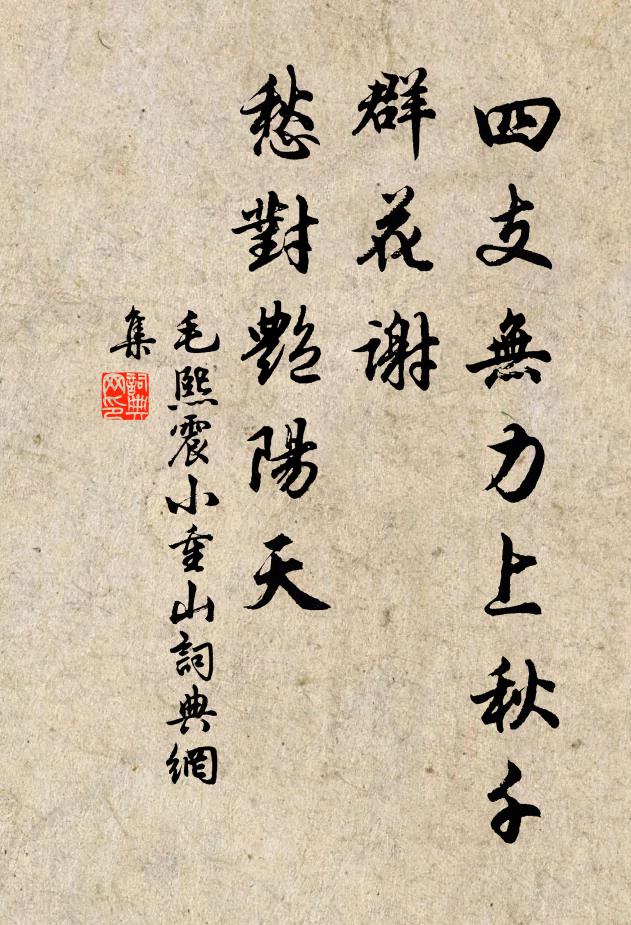 四支無力上秋千
群花謝
愁對艷陽天
毛熙震小重山詞典網
集
詞典
网印